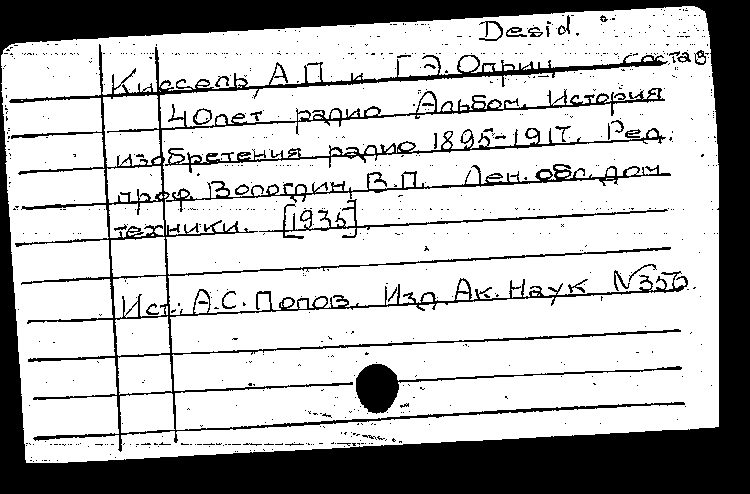 Desid.
Киссель, А.П. и Г.Э. Оприц состав
40 лет радио Альбом. История
изобретения радио 1895-1917. Ред.
проф. Вологдин, В.П. Лен. обл. дом
техники. [1935].
Ист.: А.С. Попов. Изд. Ак. Наук, №350.